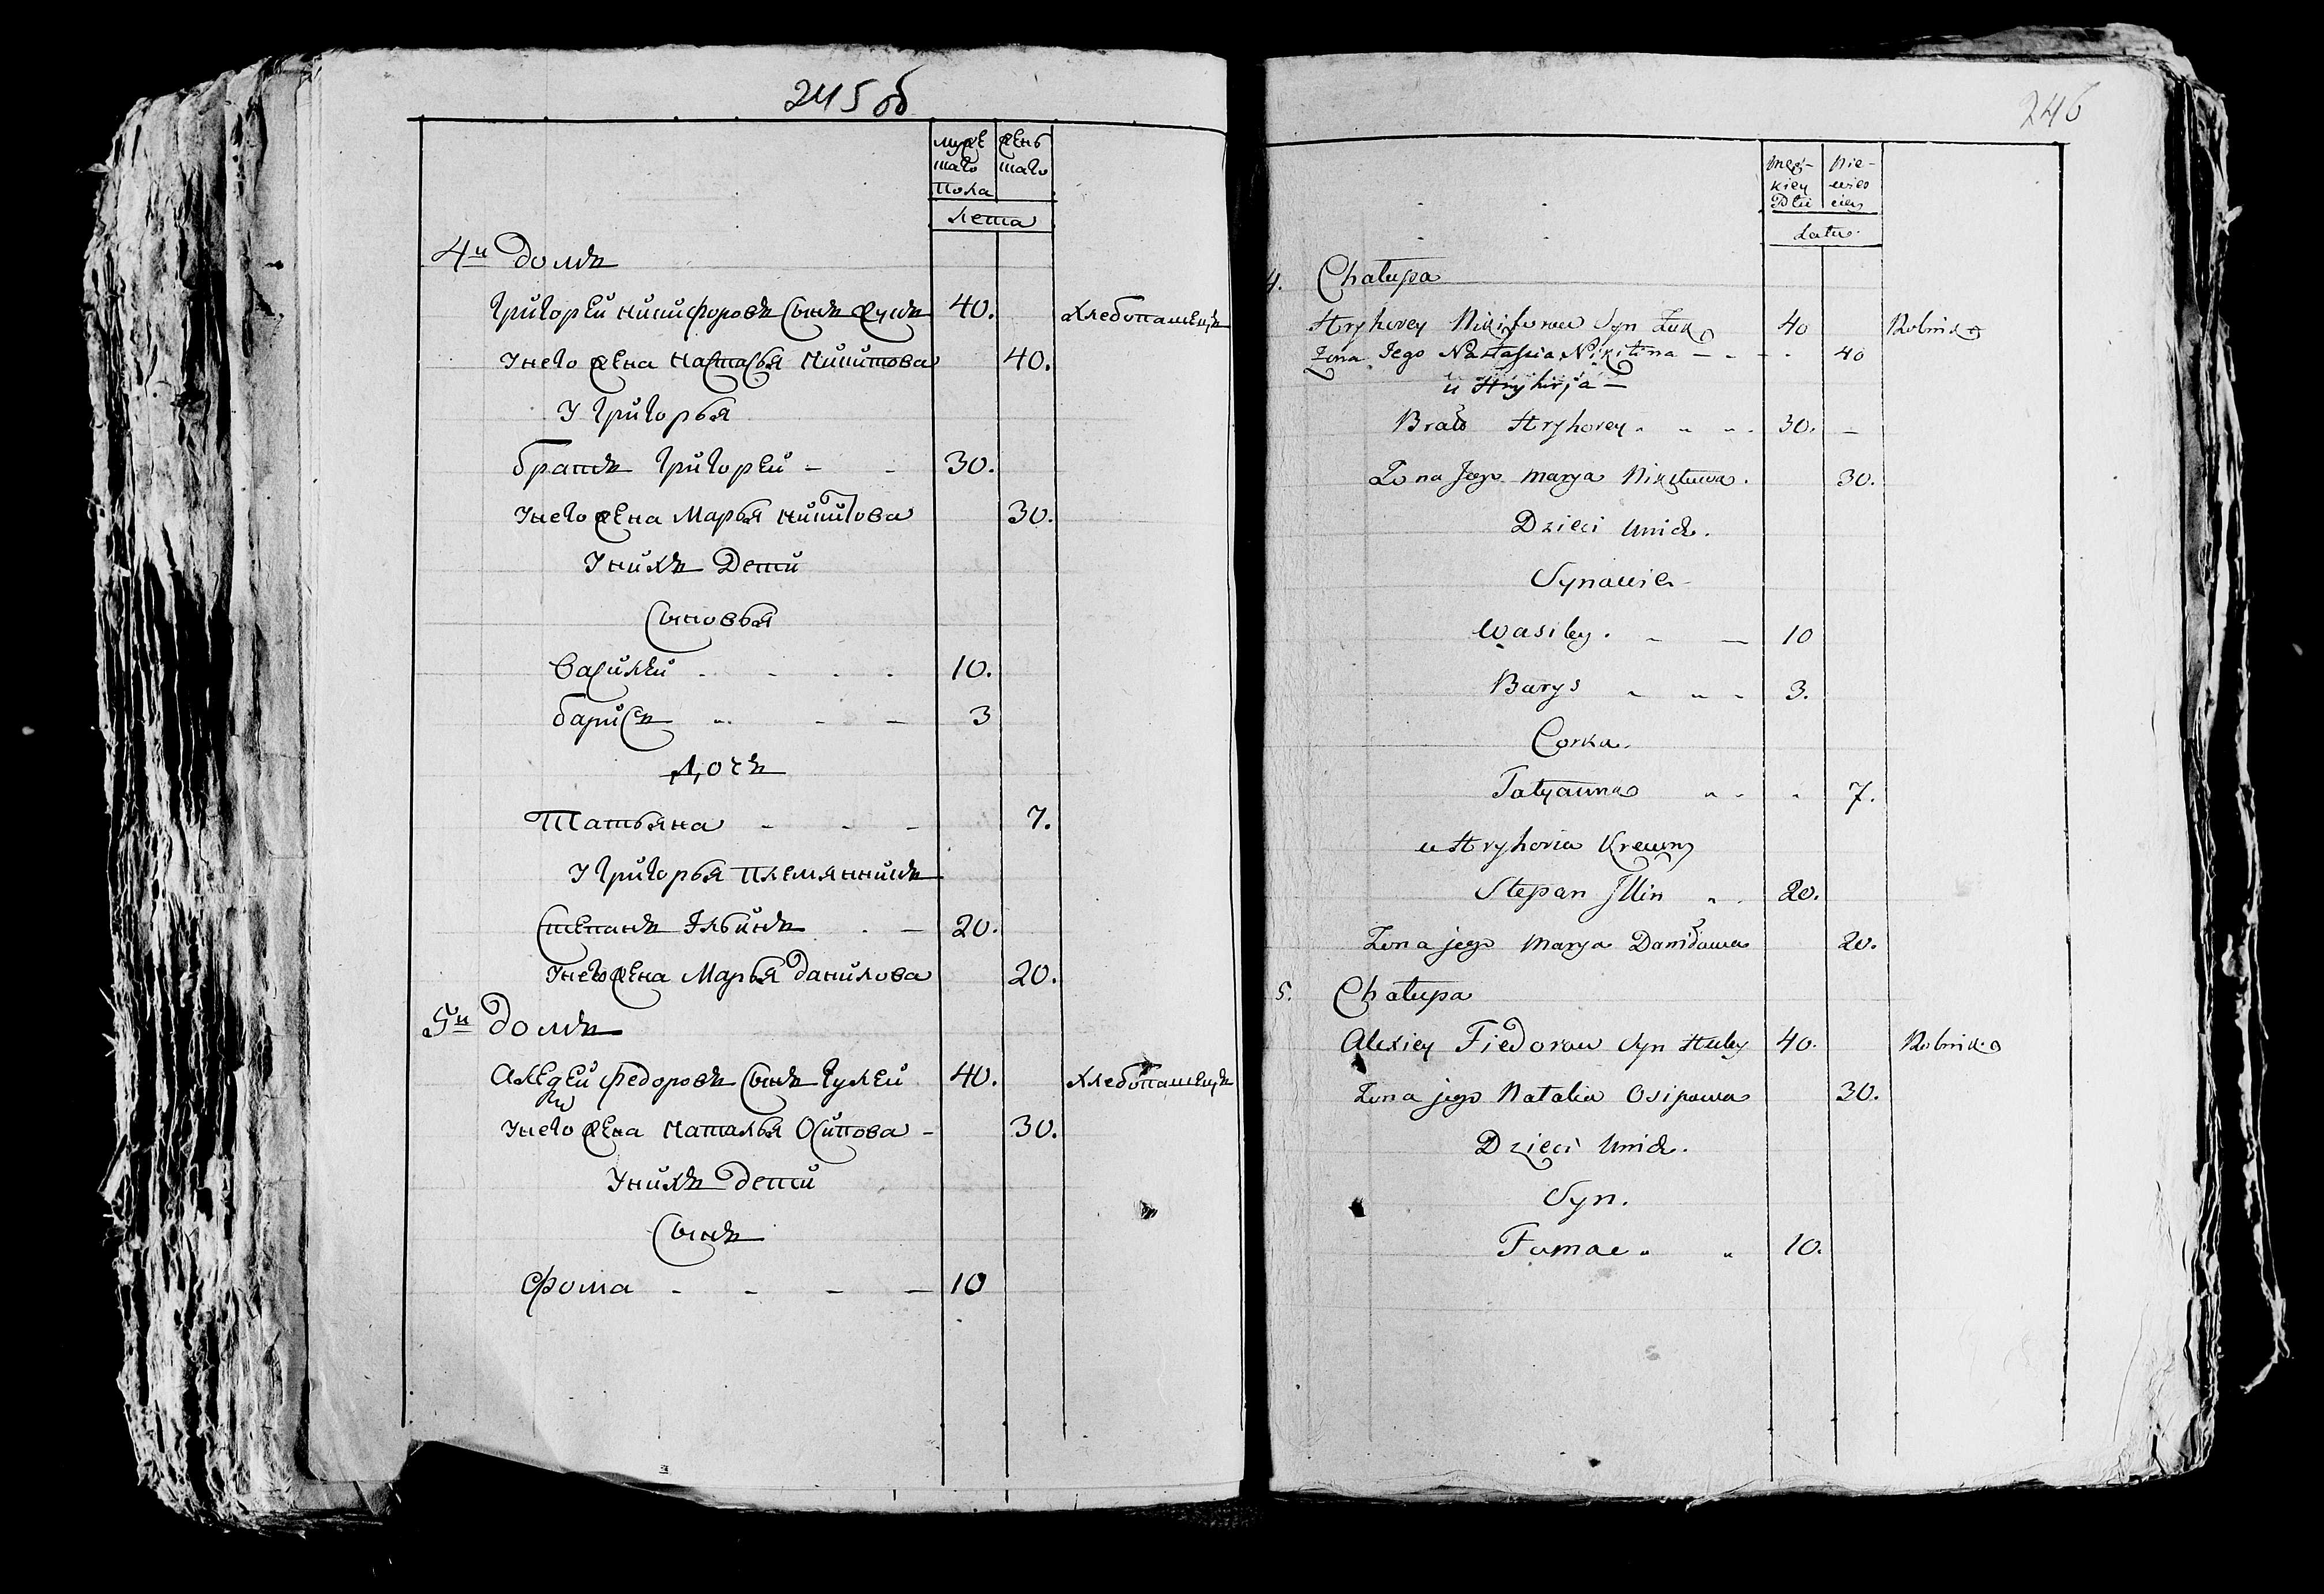 245 об
муже женъ
таго таго
пола
лета
4й домъ
Григорей никифоровъ Сынъ жукъ 40. Хлебопашецъ
Унего жена настасья Никитова 40.
У Григорья
братъ Григорей - - 30.
Унего жена Марья никитова 30.
Унихъ Дети
Сыновья
Василей - - - - 10.
барисъ - - - 3
Дочь
Татьяна - - - 7.
У Григорья племянникъ
Степанъ Ильинъ - - 20.
Унего жена Марья данилова 20.
5й домъ
Аледей федоровъ Сынъ гулей 40. Хлебопашецъ
Унего жена наталья Осипова - 30.
Унихъ дети
Сынъ
Фома - - - - 10
246
męz- nie-
kiey wies
Płci ciey
Latu
4. Chałupa
Hryhorey Nikiforow Syn Zuk 40 Rolnik
Zona Jego Nastassia Nikitina - - - 40
u Hryhirja -
Brat Hryhorey - - - 30. -
Zona Jego Marya Nikitowa. 30.
Dzieci Unich.
Synawie
Wasiley. - - 10
Barys - - - 3.
Corka.
Tatyanna - - - 7.
u Hryhoria Krewny
Stepan Illin - - 20.
Zona jego Marya Daniłowa 20.
5. Chałupa
Alexiey Fiedorow Syn Huley 40. Rolnik
Zona jego Natalia Osipowa 30.
Dzieci Unich.
Syn.
Fomae - - 10.